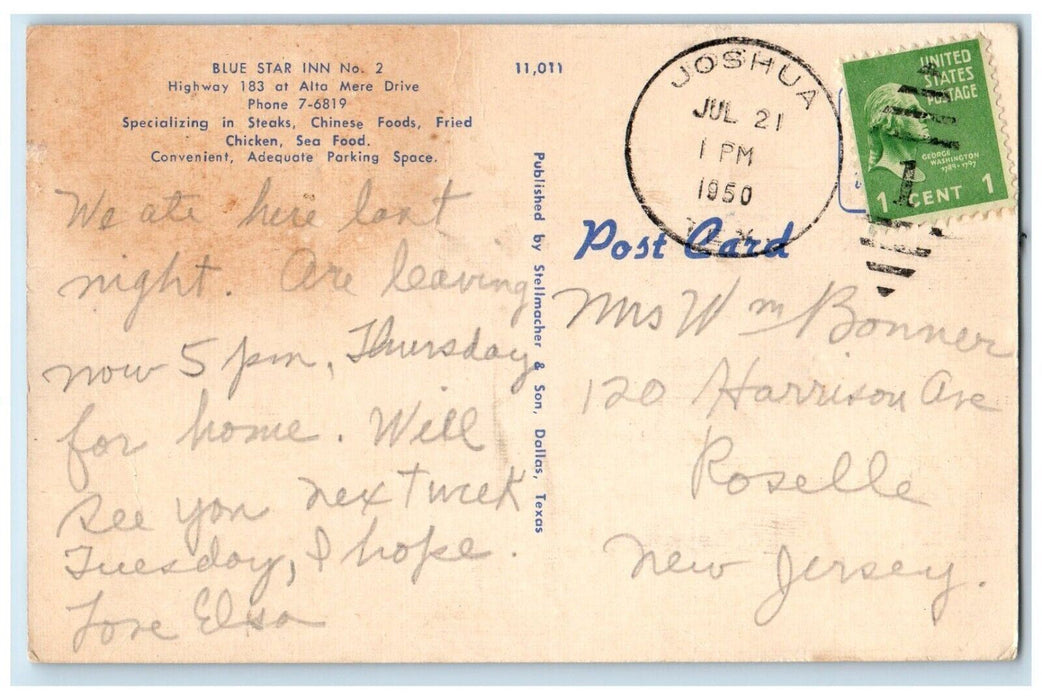 BLUE STAR INN No. 2
Highway 183 at Alta Mere Drive
Phone 7-6819
Specializing in Steaks, Chinese Foods, Fried
Chicken, Sea Food.
Convenient, Adequate Parking Space.
11,011
We ate here last
night. Are leaving
now 5 pm, Thursday
for home. Will
see you next week
Tuesday, I hope.
Love Elsa
Published by Stellmacher & Son, Dallas, Texas
JOSHUA
JUL 21
1 PM
1950
UNITED
STATES
POSTAGE
GEORGE
WASHINGTON
1789-1797
1 CENT 1
Post Card
Mrs Wm Bonner
120 Harrison Ave
Roselle
New Jersey.